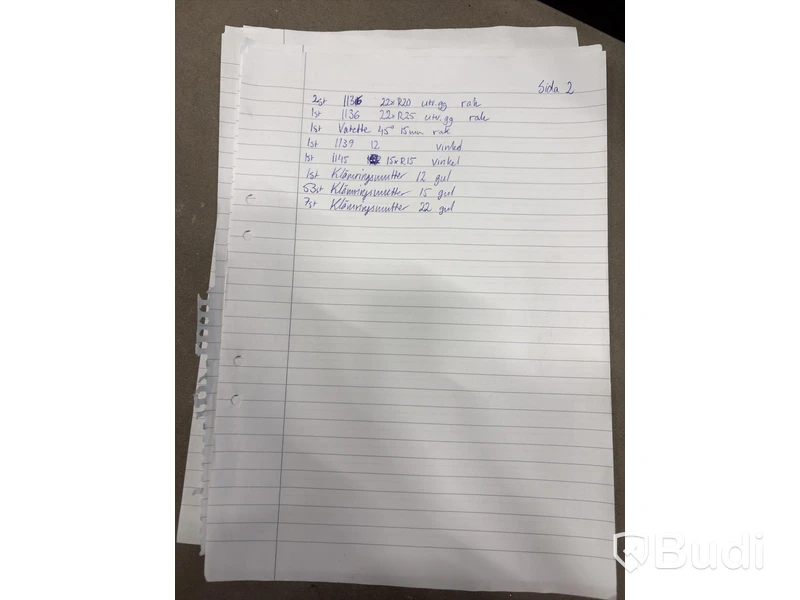 Sida 2
2st 1136 22xR20 utv.gg rak
1st 1136 22xR25 utv.gg rak
1st Vatette 45° 15mm rak
1st 1139 12 vinkel
1st 1145 15xR15 vinkel
1st Klämringsmutter 12 gul
53st Klämringsmutter 15 gul
7st Klämringsmutter 22 gul
Budi